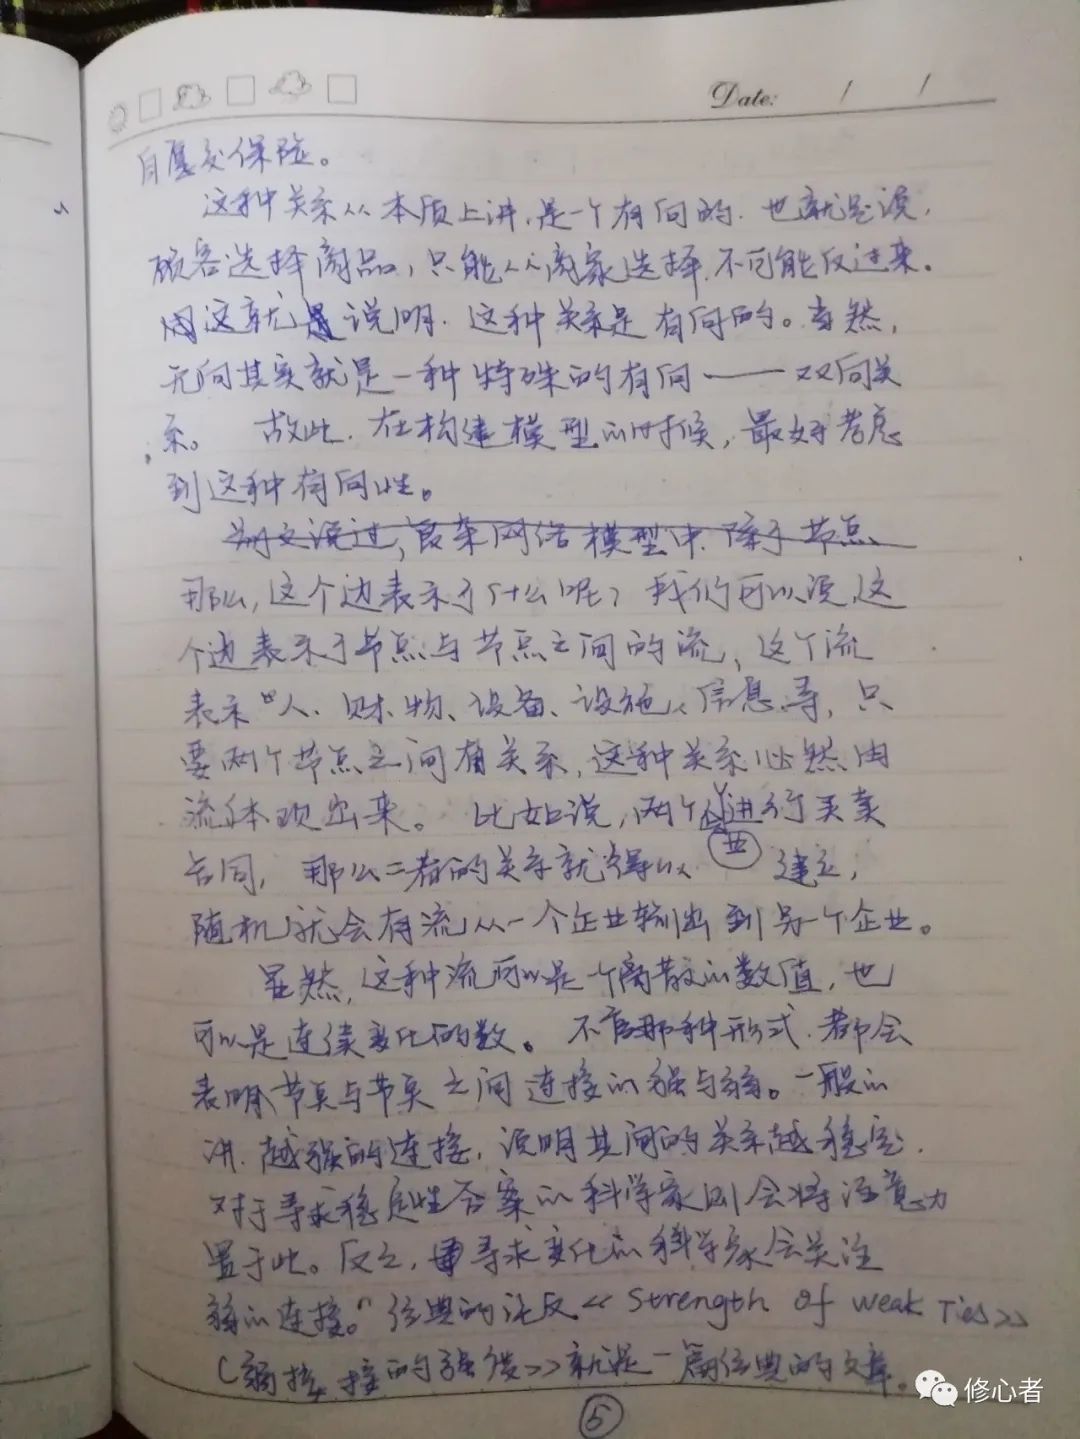 Date: / /
自愿交保险。
这种关系从本质上讲,是一个有向的.也就是说,
顾客选择商品,只能从商家选择,不可能反过来。
这就是说明.这种关系是有向的。当然,
无向其实就是一种特殊的有向——双向关
系。 故此.在构建模型的时候,最好考虑
到这种有向性。
前文说过,复杂网络模型中.除了节点
那么,这个边表示了什么呢?我们可以说,这
个边表示了节点与节点之间的流,这个流
表示"人、财、物、设备、设施、信息等,只
要两个节点之间有关系,这种关系必然由
流体现出来。 比如说,两个企业进行买卖
合同, 那么二者的关系就得以 建立,
随机就会有流从一个企业输出到另一个企业。
显然,这种流可以是一个离散的数值,也
可以是连续变化的数。 不管那种形式.都会
表明节点与节点之间连接的强与弱。一般的
讲.越强的连接,说明其间的关系越稳定.
对于寻求稳定性答案的科学家则会将注意力
置于此。反之,寻求变化的科学家会关注
弱的连接。 经典的 《Strength of weak Ties》
就是一篇经典的文章。
5
修心者